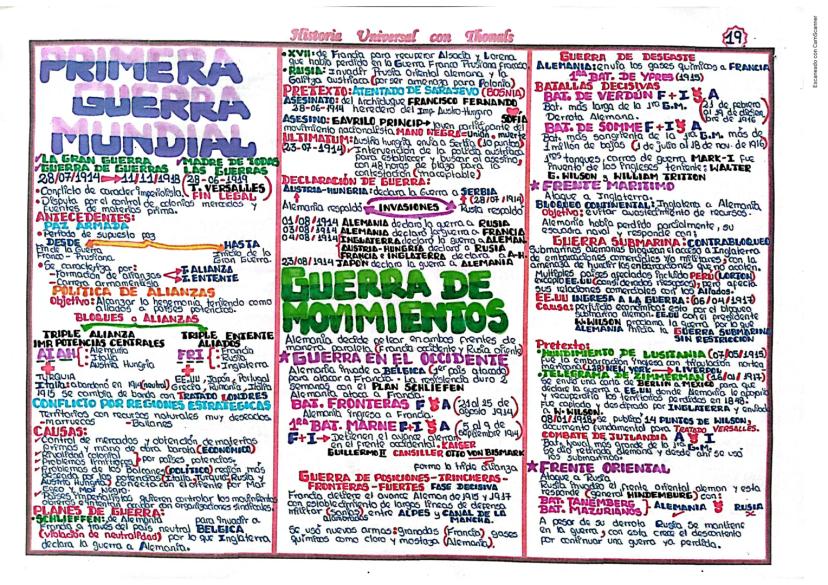 Historia Universal con Thonals
19
Escaneado con CamScanner
PRIMERA
GUERRA
MUNDIAL
LA GRAN GUERRA
GUERRA DE GUERRAS
MADRE DE TODAS
LAS GUERRAS
28/07/1914 11/11/1918 28-6-1919
T. VERSALLES
FIN LEGAL
Conflicto de caracter imperialista
Disputa por el control de colonias, mercados y
Fuentes de materias prima.
ANTECEDENTES:
PAZ ARMADA
Periodo de supuesta paz
DESDE HASTA
Fin de la Guerra
Franco - Prusiana.
Inicio de la
Gran Guerra.
Se caracteriza por:
- Formación de alianzas
- Carrera armamentista
T. ALIANZA
T. ENTENTE
POLÍTICA DE ALIANZAS
Objetivo: Alcanzar la hegemonía teniendo como
aliados a países potenciales.
BLOQUES o ALIANZAS
TRIPLE ALIANZA
IMP. POTENCIAS CENTRALES
TRIPLE ENTENTE
ALIADOS
AIAH
Alemania
Italia
Austria Hungría
FRI
Francia
Rusia
Inglaterra
TURQUIA
EE.UU, Japón, Portugal
Italia abandonó en 1914 (neutral)
Grecia, Rumania, Italia
1915 se cambia de bando con TRATADO LONDRES
CONFLICTO POR REGIONES ESTRATEGICAS
Territorios con recursos naturales muy deseados
- marruecos - Balcanes
CAUSAS:
Control de mercados y obtención de materias
primas y mano de obra barata (ECONÓMICO)
Rivalidad colonial
Problemas limítrofes
entre países potencias.
Problemas de los Balcanes (POLÍTICO) región más
deseada por las potencias (Italia, Turquía, Rusia y
Austria Hungría) conecta con el oriente por Mar
Egeo y Mar Negro
Países imperialistas quieren controlar los movimientos
obreros e intentos de organizaciones sindicales.
PLANES DE GUERRA:
SCHLIEFFEN: de Alemania para invadir a
Francia a través del país neutral BELGICA
(violación de neutralidad) por lo que Inglaterra
declara la guerra a Alemania.
XVII: de Francia para recuperar Alsacia y Lorena
que había perdido en la Guerra Franco Prusiana
RUSIA: Invadir Prusia Oriental alemana y la
Galitza austriaca (por ser amenaza para Polonia)
PRETEXTO: ATENTADO DE SARAJEVO (BOSNIA)
ASESINATO: del Archiduque FRANCISCO FERNANDO
28-06-1914 heredero del Imp Austro-Hungro
SOFIA
ASESINO: GAVRILO PRINCIP → joven participante del
movimiento nacionalista MANO NEGRA = Unión o muerte
ULTIMATUM: Austria hungría envía a Serbia (10 puntos)
(23-07-1914)
Intervención de la policía austriaca
para establecer y buscar al asesino,
con 48 horas de plazo para la
contestación (inaceptable)
DECLARACIÓN DE GUERRA:
AUSTRIA-HUNGRIA: declara la Guerra a SERBIA
(28/07/1914)
Alemania respaldó INVASIONES Rusia respaldó
01/08/1914 ALEMANIA declara la guerra a RUSIA
03/08/1914 ALEMANIA declara la guerra a FRANCIA
04/08/1914 INGLATERRA declara la guerra a ALEMANIA
AUSTRIA-HUNGRIA declara a RUSIA
FRANCIA e INGLATERRA declara a A-H.
23/08/1914 JAPON declara la guerra a ALEMANIA
GUERRA DE
MOVIMIENTOS
Alemania decide pelear en ambos frentes de
manera paralela (Francia occidente y Rusia oriente)
GUERRA EN EL OCCIDENTE
Alemania invade a BELGICA (1er país atacado
para atacar a Francia. La resistencia dura 2
semanas) con el PLAN SCHLIEFFEN
Alemania ataca a Francia.
BAT. FRONTERAS F A (21 al 25 de
agosto 1914)
Alemania ingresa a Francia.
BAT. MARNE F+I A (5 al 9 de
septiembre 1914)
F+I → Detienen el avance aleman
en el frente occidental KAISER
GUILLERMO II CANSILLER OTTO VON BISMARK
formo la triple alianza
GUERRA DE POSICIONES - TRINCHERAS -
FRONTERAS - FUERTES FASE DECISIVA
Francia detiene el avance Aleman de 1915 y 1917
con establecimiento de largas líneas de defensa
militar (zanjas) entre ALPES y CANAL DE LA
MANCHA.
alambrados
Se usó nuevas armas: granadas (Francia), gases
químicos como cloro y mostaza (Alemania).
GUERRA DE DESGASTE
ALEMANIA: envía los gases químicos a FRANCIA
1ra BAT. DE YPRES (1915)
BATALLAS DECISIVAS
BAT. DE VERDÚN F+I A
Bat. más larga de la 1ra G.M.
Derrota Alemana.
(21 de febrero
al 19 de diciembre de 1916)
BAT. DE SOMME F+I A
Bat. más sangrienta de la 1ra G.M. más de
1 millón de bajas (1 de julio al 18 de nov. de 1916)
1eros tanques, carros de guerra MARK-I Fue
invento de los Ingleses teniente: WALTER
G. WILSON y WILLIAM TRITTON
FRENTE MARITIMO
Ataque a Inglaterra.
BLOQUEO CONTINENTAL: Inglaterra a Alemania.
Objetivo: evitar abastecimiento de recursos.
Alemania había perdido parcialmente, su
escuadra naval responde con:
GUERRA SUBMARINA: CONTRABLOQUEO
Submarinos alemanes bloquean el acceso a Inglaterra
de embarcaciones comerciales y/o militares, con la
amenaza de hundir las embarcaciones que no acaten.
Múltiples países afectados incluido PERÚ (LORTON)
excepto EE.UU (considerados riesgosos), pero afecta
sus relaciones comerciales con los Aliados.
EE.UU INGRESA A LA GUERRA: (06/04/1917)
Causa: perjuicio económico hecho por el bloqueo
submarino aleman. EE.UU con el presidente
W. WILSON proclama la guerra por lo que
ALEMANIA inicia la GUERRA SUBMARINA
SIN RESTRICCION
Pretexto:
HUNDIMIENTO DE LUSITANIA (07/05/1915)
Fue la embarcación inglesa con tripulación norte
americana (128) NEW YORK → LIVERPOOL
TELEGRAMA DE ZIMMERMAN (16/01/1917)
se envía una carta de BERLIN a MEXICO para que
declare la guerra a EE.UU, donde Alemania lo apoyaría
y recuperaría los territorios perdidos en 1848.
Fue captado y descifrado por INGLATERRA y enviado
a W. WILSON.
08/01/1918 se publicó 14 PUNTOS DE WILSON,
documento fundamental para TRATADO VERSALLES.
COMBATE DE JUTLANDIA A I
Bat. Naval más grande de la 1ra G.M.
Se dio retirada alemana y desde ahí se usó
submarinos.
FRENTE ORIENTAL
Ataque a Rusia
Rusia invadió el frente oriental aleman y esta
responde (General HINDEMBURG) con:
BAT. TANEMBERG
BAT. MAZURIANOS
ALEMANIA RUSIA
A pesar de su derrota Rusia se mantiene
en la guerra, con esta crece el descontento
por continuar una guerra ya perdida.